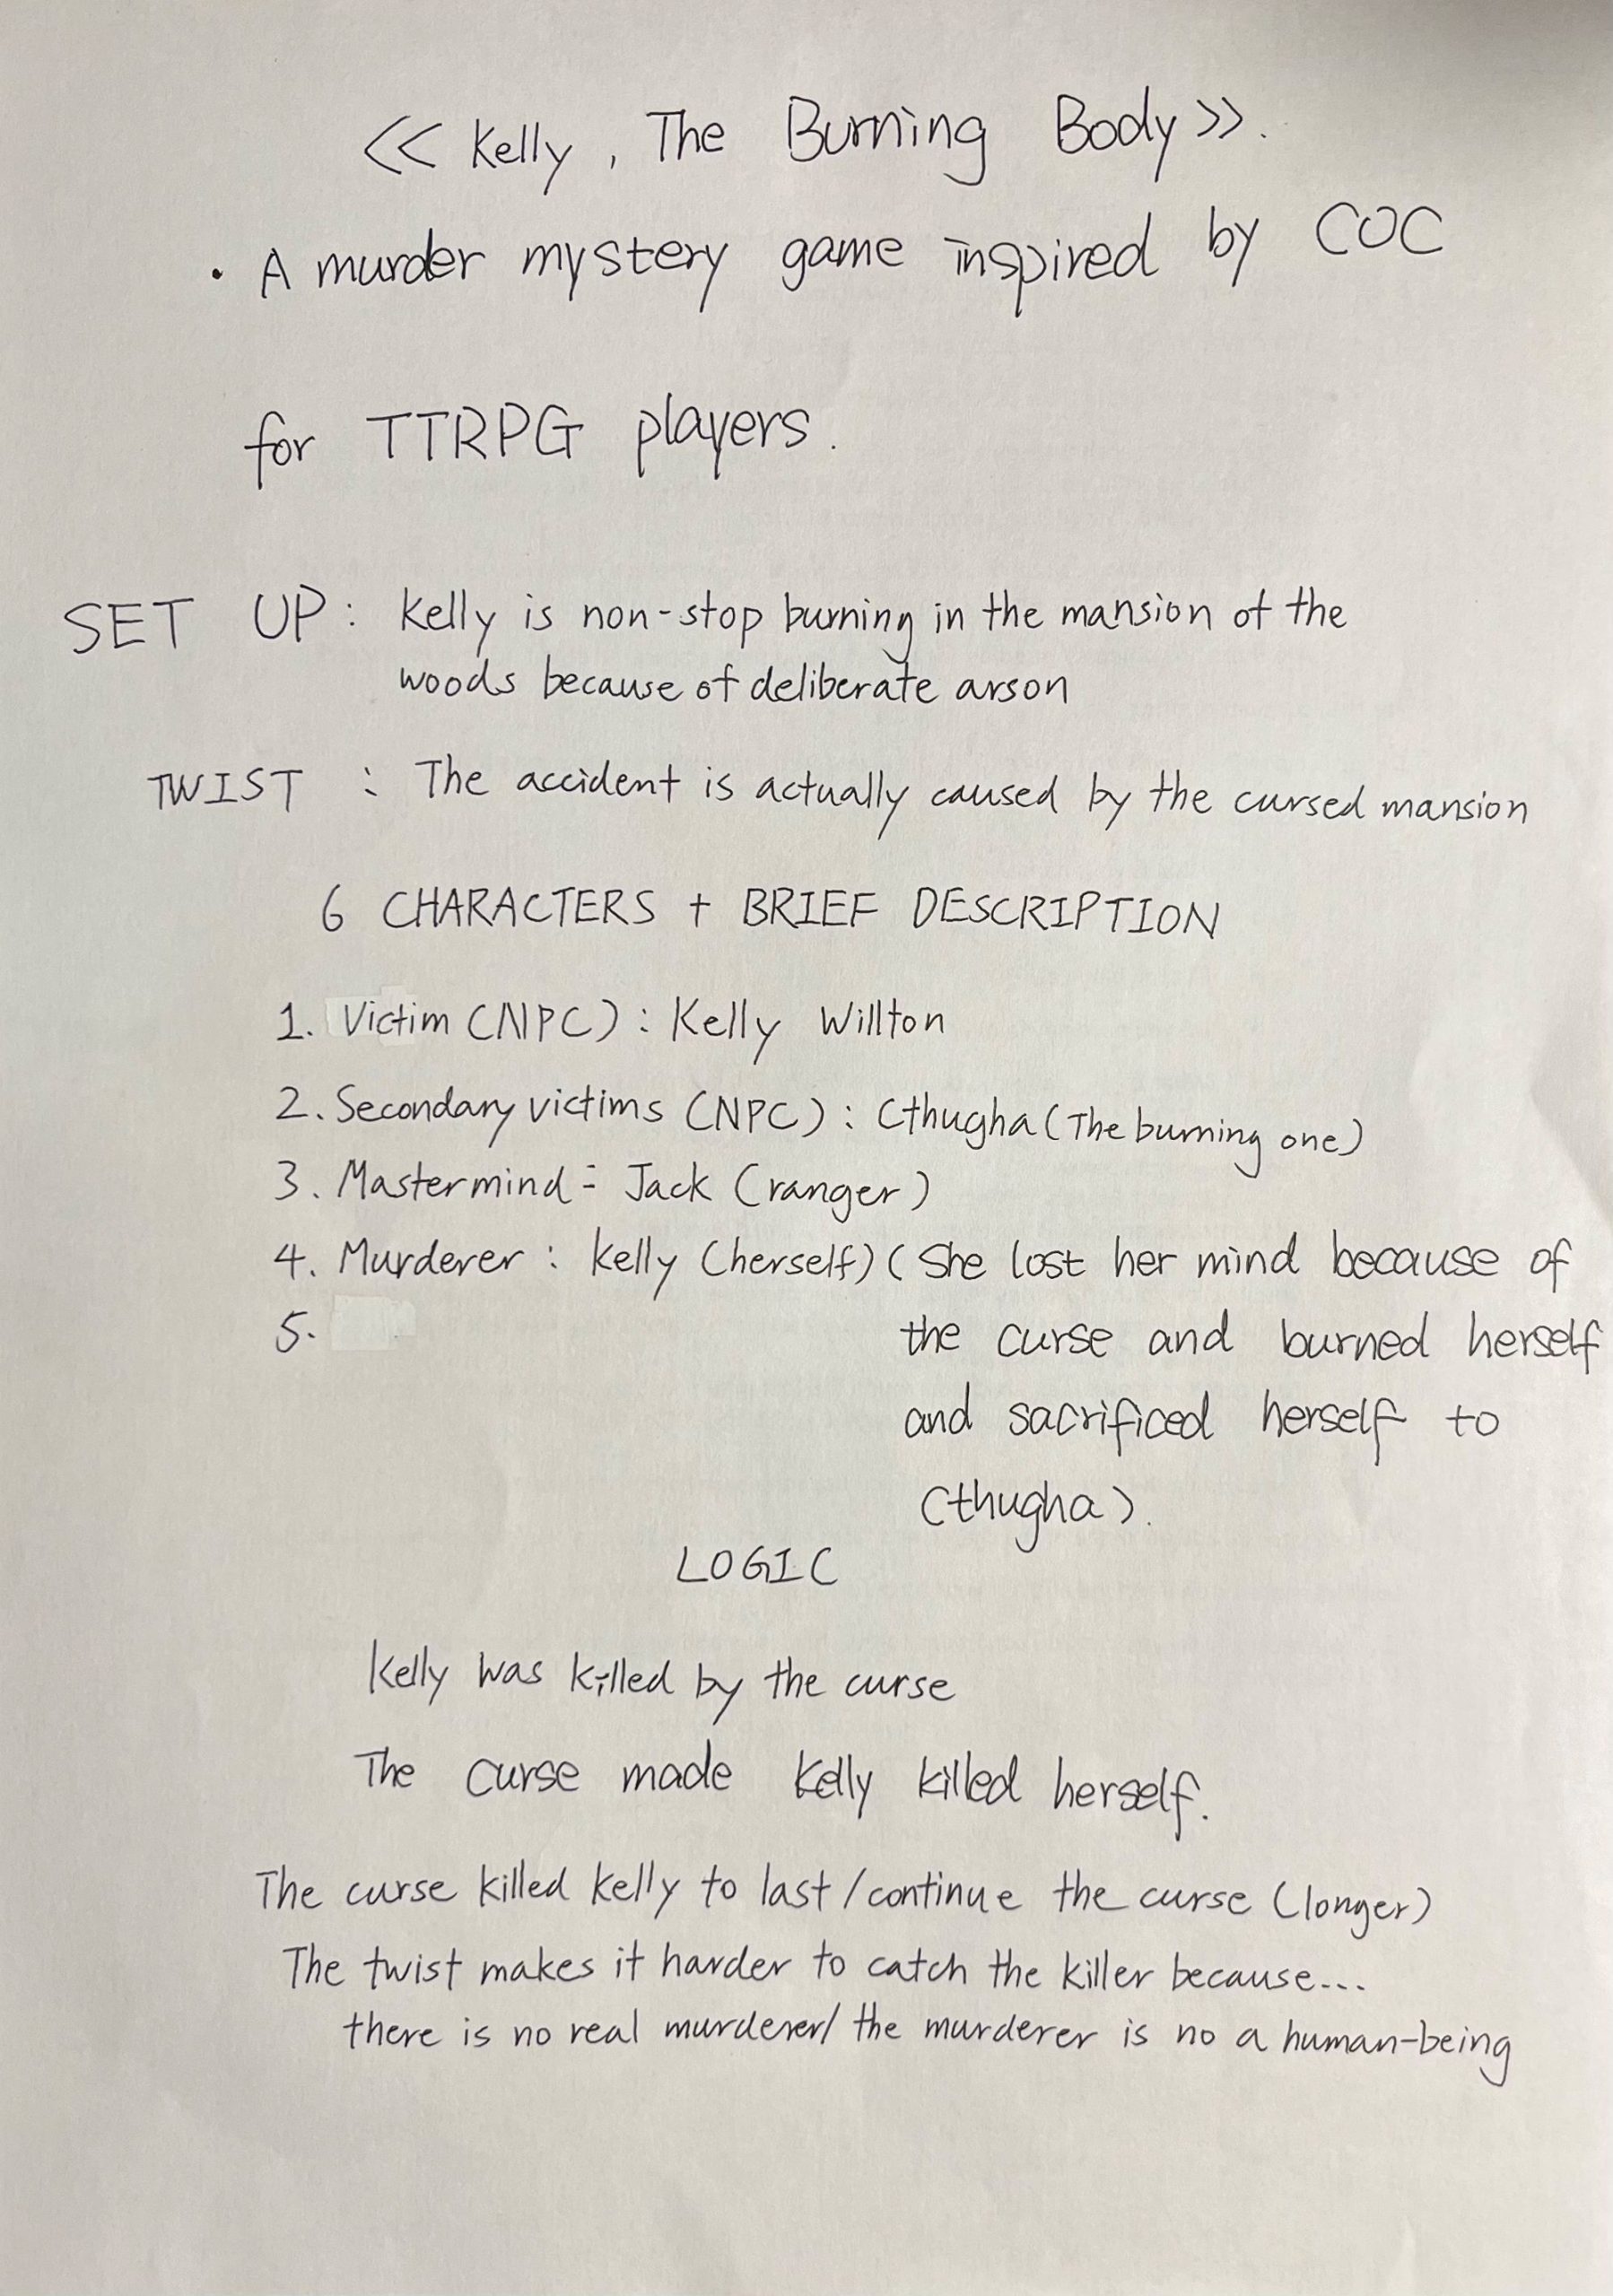 << Kelly, The Burning Body >>.
· A murder mystery game inspired by COC
for TTRPG players.
SET UP: Kelly is non-stop burning in the mansion of the
woods because of deliberate arson
TWIST : The accident is actually caused by the cursed mansion
6 CHARACTERS + BRIEF DESCRIPTION
1. Victim (NPC) : Kelly Willton
2. Secondary victims (NPC) : Cthugha (The burning one)
3. Mastermind : Jack (ranger)
4. Murderer : Kelly (herself) ( She lost her mind because of
5. the curse and burned herself
and sacrificed herself to
Cthugha).
LOGIC
Kelly was killed by the curse
The curse made Kelly killed herself.
The curse killed kelly to last / continue the curse (longer)
The twist makes it harder to catch the killer because...
there is no real murderer/ the murderer is no a human-being